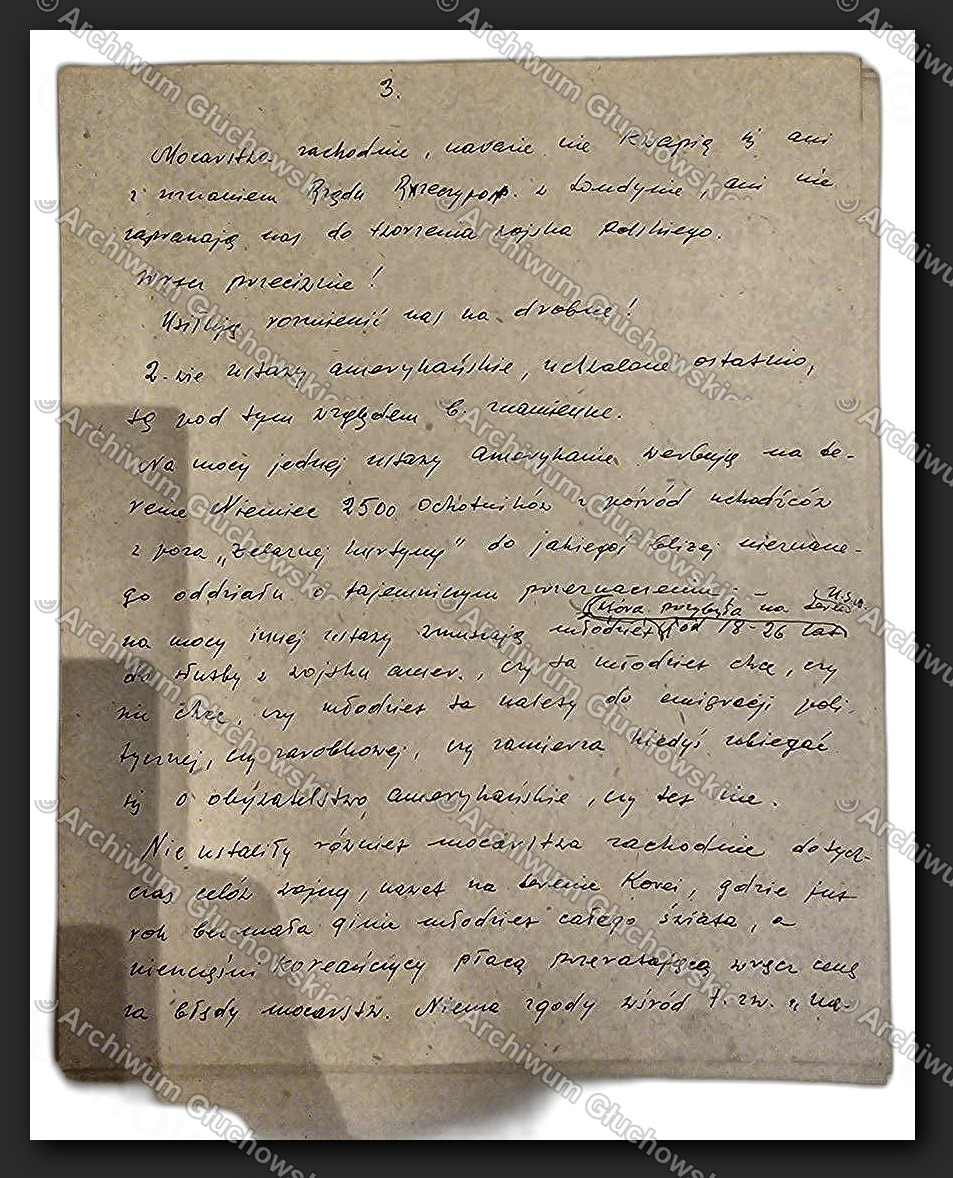 3.
Mocarstwa zachodnie, narazie nie kwapią się ani
z uznaniem Rządu Rzeczyposp. w Londynie, ani nie
zapraszają nas do tworzenia wojska Polskiego.
Wręcz przeciwnie!
Usiłują rozmienić nas na drobne!
2-wie ustawy amerykańskie, uchwalone ostatnio,
są pod tym względem b. znamienne.
Na mocy jednej ustawy amerykanie werbują na te-
renie Niemiec 2500 ochotników z pośród uchodźców
z poza „żelaznej kurtyny" do jakiegoś bliżej nieznane-
go oddziału o tajemniczym przeznaczeniu, –
która przybyła na teren U.S.A.
na mocy innej ustawy zmuszają młodzież od 18-26 lat
do służby w wojsku amer., czy ta młodzież chce, czy
nie chce, czy młodzież ta należy do emigracji poli-
tycznej, czy zarobkowej, czy zamierza kiedyś ubiegać
się o obywatelstwo amerykańskie, czy też nie.
Nie ustaliły również mocarstwa zachodnie dotych-
czas celów wojny, nawet na terenie Korei, gdzie już
rok bez mała ginie młodzież całego świata, a
nieszczęśni Koreańczycy płacą przerażającą wręcz cenę
za błędy mocarstw. Niema zgody wśród t. zw. „na-
© Archiwum Głuchowskich